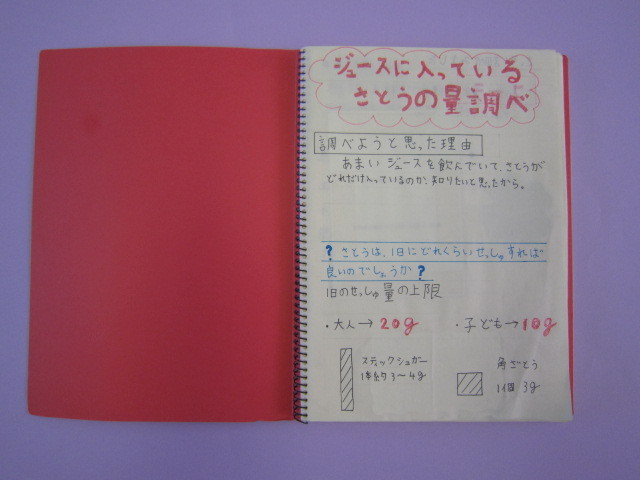 ジュースに入っている
さとうの量調べ
調べようと思った理由
あまいジュースを飲んでいて、さとうが
どれだけ入っているのか、知りたいと思ったから。
? さとうは、1日にどれくらいせっしゅすれば
良いのでしょうか?
1日のせっしゅ量の上限
・大人→20g ・子ども→10g
スティックシュガー
1本約3〜4g
角ざとう
1個 3g